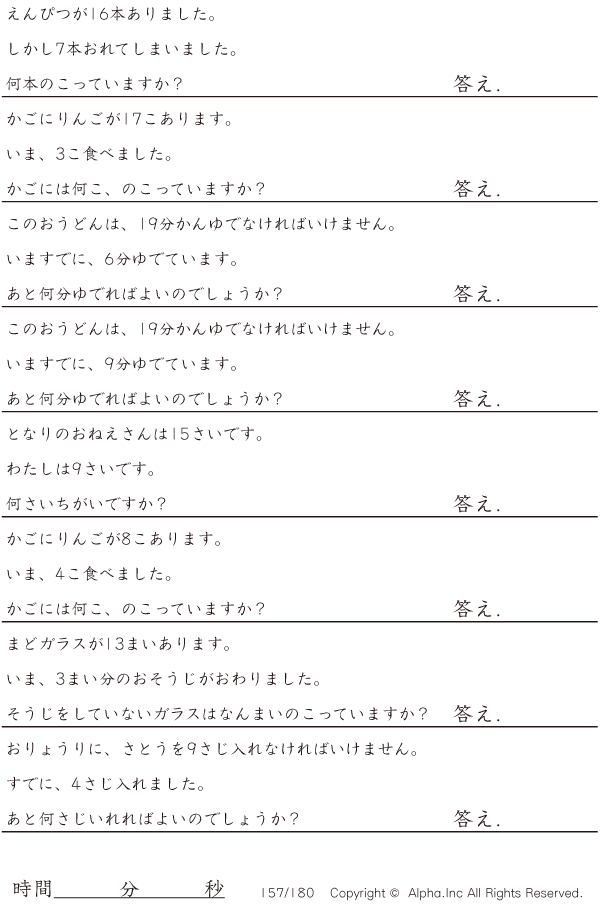 えんぴつが16本ありました。
しかし7本おれてしまいました。
何本のこっていますか? 答え.
かごにりんごが17こあります。
いま、3こ食べました。
かごには何こ、のこっていますか? 答え.
このおうどんは、19分かんゆでなければいけません。
いますでに、6分ゆでています。
あと何分ゆでればよいのでしょうか? 答え.
このおうどんは、19分かんゆでなければいけません。
いますでに、9分ゆでています。
あと何分ゆでればよいのでしょうか? 答え.
となりのおねえさんは15さいです。
わたしは9さいです。
何さいちがいですか? 答え.
かごにりんごが8こあります。
いま、4こ食べました。
かごには何こ、のこっていますか? 答え.
まどガラスが13まいあります。
いま、3まい分のおそうじがおわりました。
そうじをしていないガラスはなんまいのこっていますか? 答え.
おりょうりに、さとうを9さじ入れなければいけません。
すでに、4さじ入れました。
あと何さじいれればよいのでしょうか? 答え.
時間 分 秒 157/180 Copyright © Alpha.Inc All Rights Reserved.